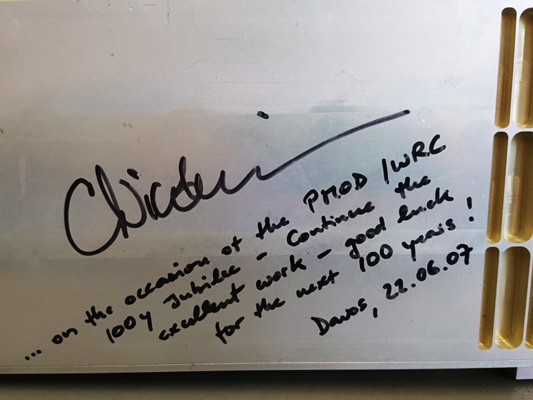 ... on the occasion of the PMOD/WRC
100y Jubilee - Continue the
excellent work - good luck
for the next 100 years!
Davos, 22.06.07